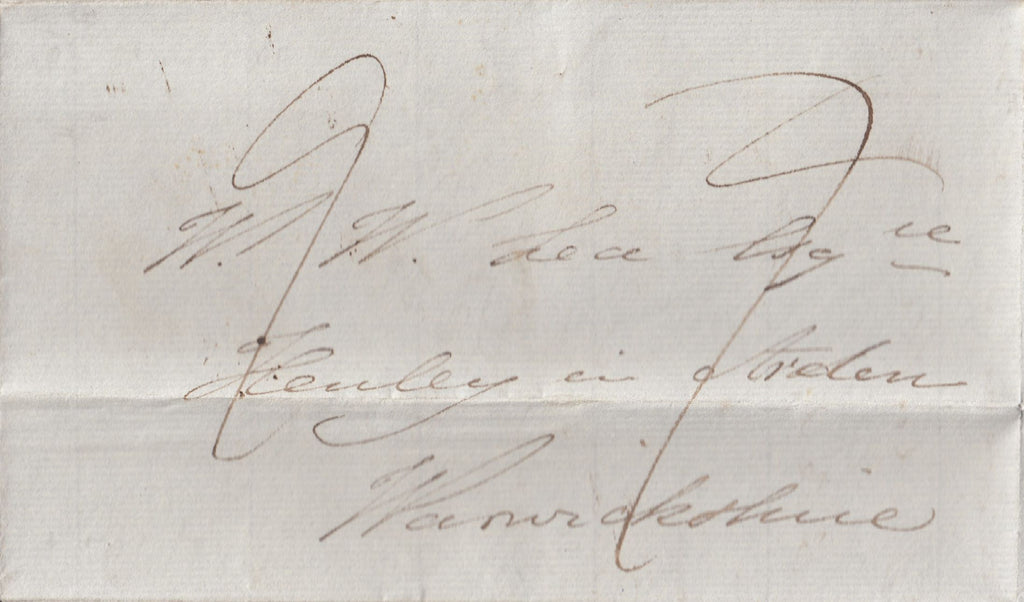 W. W. Lea Esqre
Henley in Arden
Warwickshire